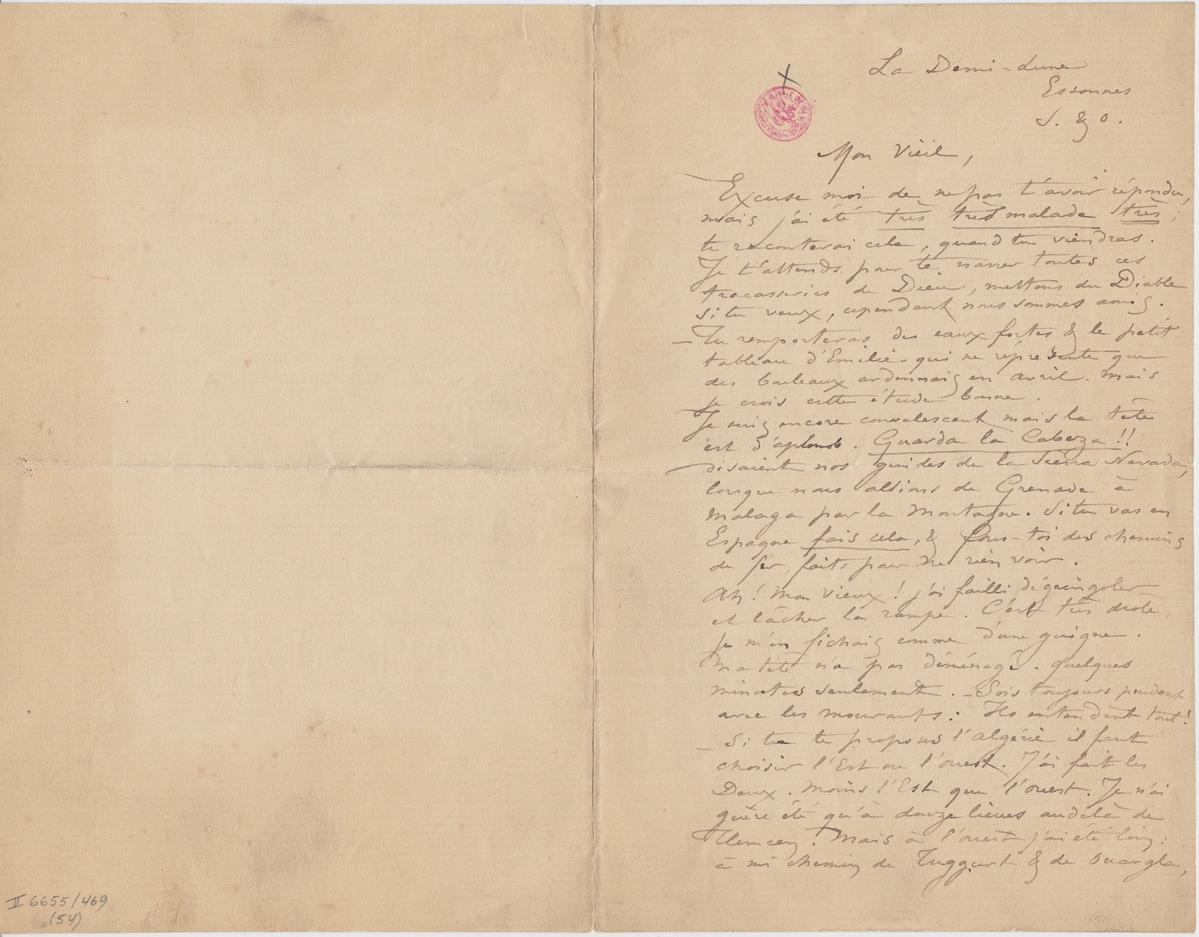 La Demi-Lune
Essonnes
S. & O.
Mon Vieil,
Excuse moi de ne pas t'avoir répondu,
mais j'ai été très très malade très ;
te raconterai cela, quand tu viendras.
Je t'attends pour te narrer toutes ces
tracasseries de Dieu, mettons du Diable
si tu veux, cependant nous sommes amis.
– Tu remporteras des eaux fortes & le petit
tableau d'Emilie qui ne représente que
des bouleaux ardennais en avril. Mais
je crois cette étude bonne.
Je suis encore convalescent mais la tête
est d'aplomb. Guarda la Cabeza !!
disaient nos guides de la Sierra Nevada,
lorsque nous allions de Grenade à
Malaga par la montagne. Si tu vas en
Espagne fais cela, & fous-toi des chemins
de fer, faits pour ne rien voir.
Ah ! mon vieux ! j'ai failli dégringoler
et lâcher la rampe. C'est très drôle,
je m'en fichais comme d'une guigne.
Ma tête n'a pas déménagé. quelques
minutes seulement. – Sois toujours prudent
avec les mourants : Ils entendent tout !
– Si tu te proposes l'Algérie il faut
choisir l'Est ou l'ouest. J'ai fait les
Deux. Moins l'Est que l'ouest. Je n'ai
guère été qu'à douze lieues au delà de
Tlemcen. Mais à l'ouest j'ai été loin :
à mi chemin de Tuggurt & de Ouargla,
II 6655/469
(54)